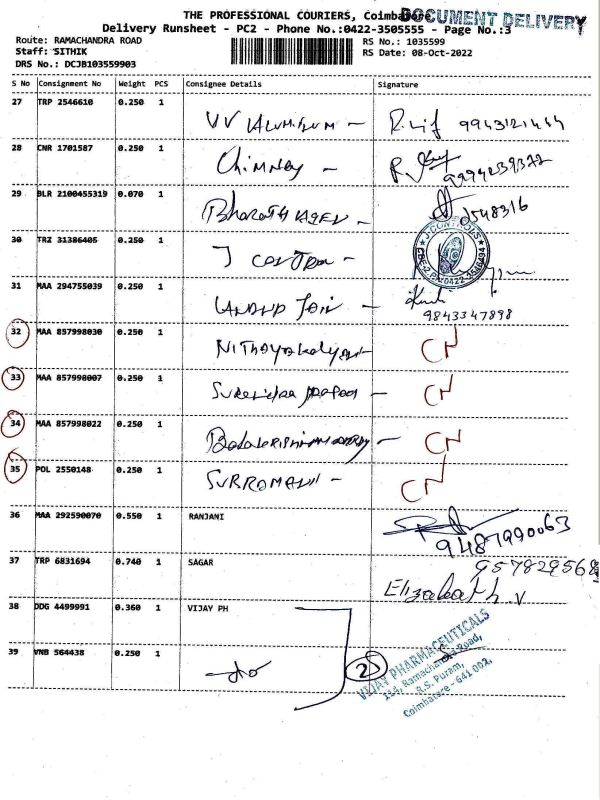 THE PROFESSIONAL COURIERS, Coimbatore
DOCUMENT DELIVERY
Delivery Runsheet - PC2 - Phone No.:0422-3505555 - Page No.:3
Route: RAMACHANDRA ROAD
RS No.: 1035599
Staff: SITHIK
RS Date: 08-Oct-2022
DRS No.: DCJB103559903
S No Consignment No Weight PCS Consignee Details Signature
27 TRP 2546610 0.250 1
28 CNR 1701587 0.250 1 Chimney -
9994239372
29 BLR 2100455319 0.070 1 Bharath
30 TRZ 31386405 0.250 1 J
J CONTROLS
CBE-2. PH:0422-3546494
31 MAA 294755039 0.250 1 Jain -
9843347898
32 MAA 857998030 0.250 1 Nithayakalyani CN
33 MAA 857998007 0.250 1 CN
34 MAA 857998022 0.250 1 CN
35 POL 2550148 0.250 1 CN
36 MAA 292590070 0.550 1 RANJANI
9487990063
37 TRP 6831694 0.740 1 SAGAR
957829568
Elizabeth. v
38 DDG 4499991 0.360 1 VIJAY PH
39 VNB 564438 0.250 1 -do-
25
VIJAY PHARMACEUTICALS
134, Ramachandra Road,
R.S. Puram,
Coimbatore - 641 002.